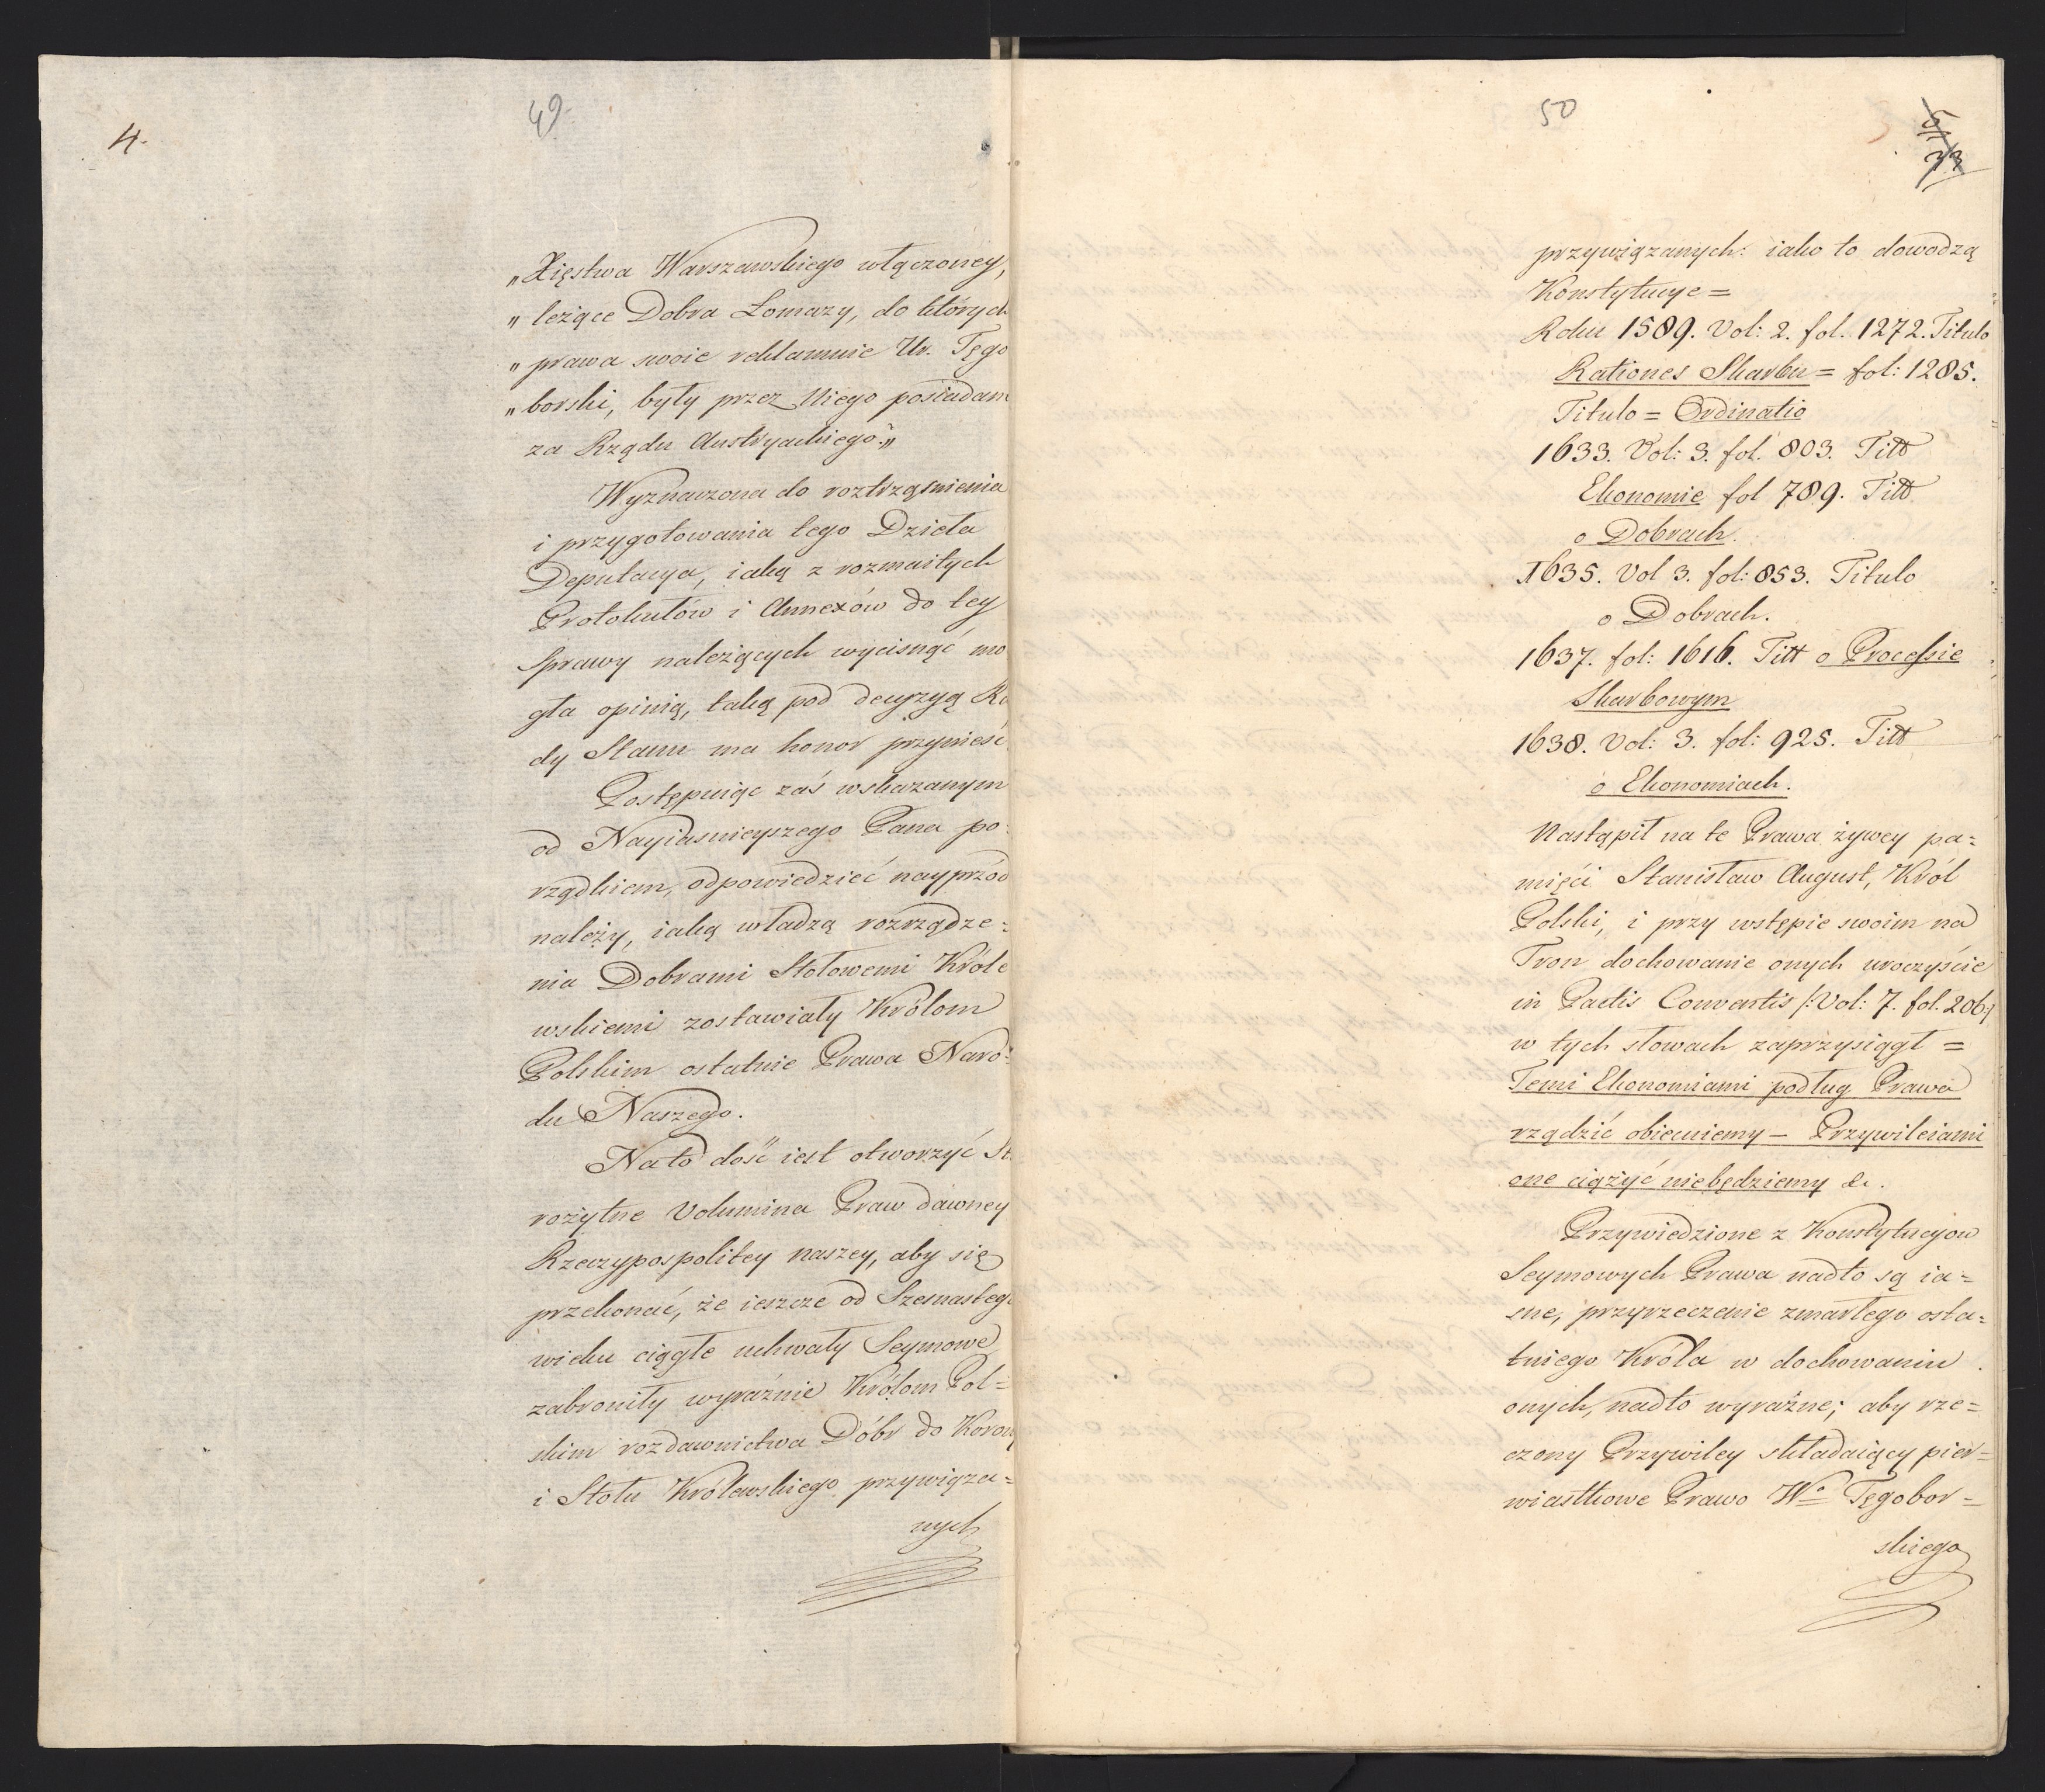 4.
49.
„Xięstwa Warszawskiego włączoney,
„leżące Dobra Łomazy, do których
„prawa swoie reklamuie Ur. Tęgo
„borski, były przez Niego posiadan
za Rządu Austryackiego.„
Wyznaczona do roztrząsnienia
i przygotowania tego Dzieła
Deputacya, iaką z rozmaitych
Protokułów i Annexów do tey
Sprawy należących wycisnąć mo
gła opinią, taką pod decyzyą Ra
dy Stanu ma honor przynieść
Postępuiąc zaś wskazanym
od Nayiaśnieyszego Pana po:
rządkiem, odpowiedzieć nayprzód
należy, iaką władzą rozrządze:
nia Dobrami Stołowemi Króle
wskiemi zostawiały Królom
Polskim ostatnie Prawa Naro:
du Naszego.
Na to dość iest otworzyć St
rożytne Volumina Praw dawney
Rzeczypospolitey naszey, aby się
przekonać, że ieszcze od Szesnasteg
wieku ciągłe uchwały Seymowe
zabroniły wyraźnie Królom Pol=
skim rozdawnictwa Dóbr do Korony
i Stołu Królewskiego przywiąza=
nych
50
5
33
przywiązanych: iako to dowodzą
Konstytucye =
Roku 1589. Vol: 2. fol. 1272. Titulo
Rationes Skarbu = fol: 1285.
Titulo = Ordinatio
1633. Vol: 3. fol. 803. Titt
Ekonomie fol 789. Titt
o Dobrach.
1635. Vol 3. fol: 853. Titulo
o Dobrach.
1637. fol: 1616. Titt o Processie
Skarbowym
1638. Vol: 3. fol: 925. Titt
o Ekonomiach.
Nastąpił na te Prawa żywey pa=
mięći Stanisław August, Król
Polski, i przy wstępie swoim na
Tron dochowanie onych uroczyście
in Pactis Conventis /: Vol: 7. fol. 206:/
w tych słowach zaprzysiągł =
Temi Ekonomiami podług Prawa
rządzić obiecuiemy – Przywileiami
one ciążyć niebędziemy &c.
Przywiedzione z Konstytucyow
Seymowych Prawa nadto są ia=
sne, przyrzeczenie zmarłego osta=
tniego Króla w dochowaniu
onych, nadto wyraźne; aby rze=
czony Przywiley składaiący pier=
wiastkowe Prawo Wo Tęgobor=
skiego